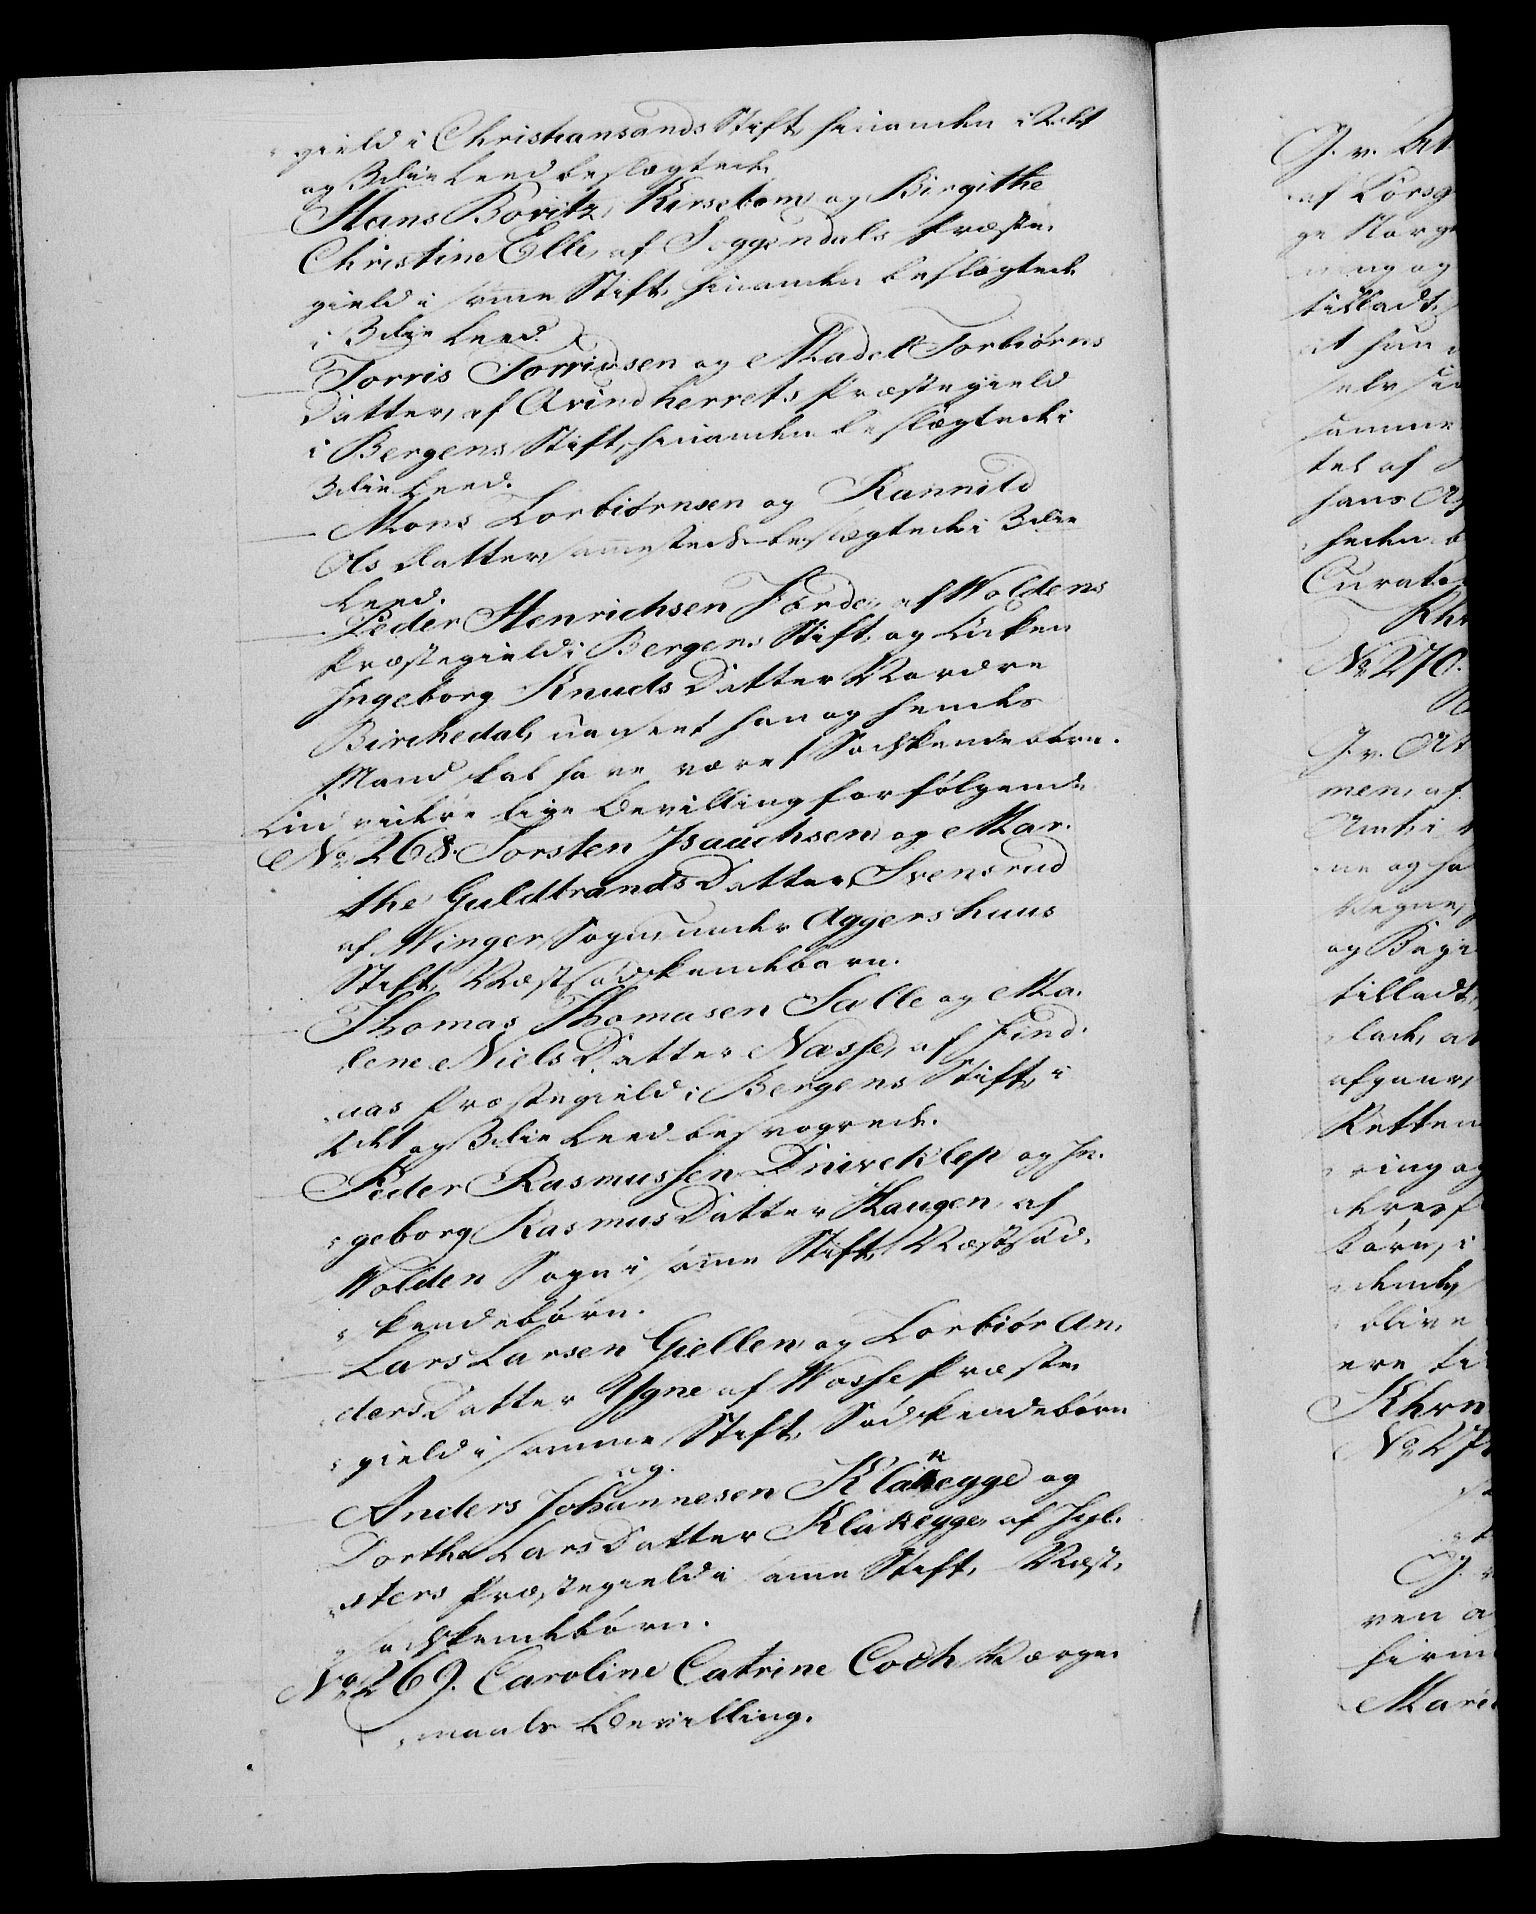 gield i Christiansands Stift, hinanden i 2det
og 3die Leed beslægtede.
Hans Boritz Kirsebom og Birgithe
Christine Elle, af Soggendals Præste-
gield i samme Stift, hinanden beslægtede
i 3die Leed.
Torris Torrissen og Madel Torbiørns
Datter, af Qvindherrets Præstegield
i Bergens Stift, hinanden beslægtede i
3die Leed.
Mons Torbiørnsen og Rannild
Ols Datter, sammesteds beslægtede i 3die
Leed.
Peder Henrichsen Förde, af Woldens
Præstegield i Bergens Stift, og Enken
Ingeborg Knuds Datter Nordre
Birchedal, uanseet han og hendes
Mand skal have været Sødskendebørn.
No 268. Torsten Isaachsen og Mar-
the Guldbrands Datter Svensrud
af Winger Sogn under Aggershuus
Stift, Næstsødskendebørn.
Thomas Thomasen Salle og Ma-
lene Niels Datter Næsse, af Find-
aas Præstegield i Bergens Stift, i
2det og 3die Leed besvogrede.
Peder Rasmussen Driveklep og In-
geborg Rasmus Datter Haugen, af
Wolden Sogn i samme Stift, Næstsød-
skendebørn.
Lars Larsen Giellen og Torbiør An-
ders Datter Ygne af Wosse Præste-
gield i samme Stift, Sødskendebørn
og
Anders Johannesen Klakegge og
Dorthe Lars Datter Klakegge, af Jøl-
sters Præstegield i samme Stift, Næst-
sødskendebørn.
No 269. Caroline Catrine Coch Værge-
maals Bevilling.
J. v.
af
ge Norg
ning og
tilladt,
at hun
selv
samme
tet af
hans
Curato
No 270.
J. v.
men, af
Amt i
ne og
Vegne,
og
tilladt,
afgaae,
Retten
ring og
Børn, i
blive
ere
Khvn
No 27
J.
ven
Marie